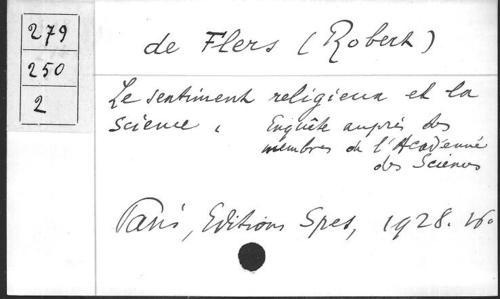 279
250
2
de Flers (Robert)
Le sentiment religieux et la
science, Enquête auprès des
membres de l'Académie
des Sciences
Paris, Editions Spes, 1928. 16o